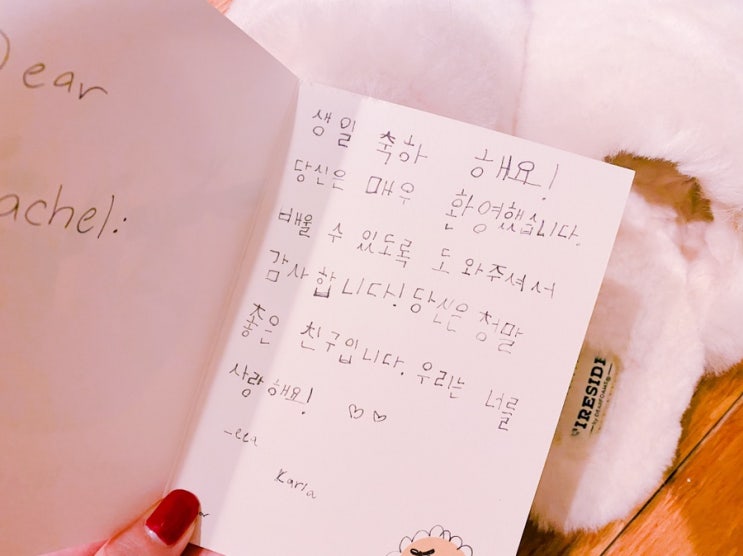 Dear
achel:
생일 축하 해요!
당신은 매우 환영했습니다.
배울 수 있도록 도 와주셔서
감사 합니다! 당신은 정말
좋은 친구입니다. 우리는 너를
사랑 해요! ♡♡
Karla
FIRESIDE
by DEARFOAMS